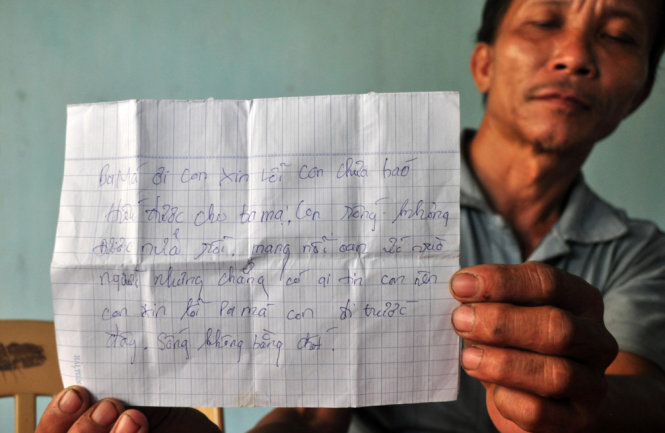 Ba Má ơi con xin lỗi con chưa báo
Hiếu được cho ba má, Con sống không
được nữa rồi. mang nỗi oan ức
người nhưng chẳng có ai tin con nên
con xin lỗi Ba má con đi trước
đây. Sống không bằng chết.